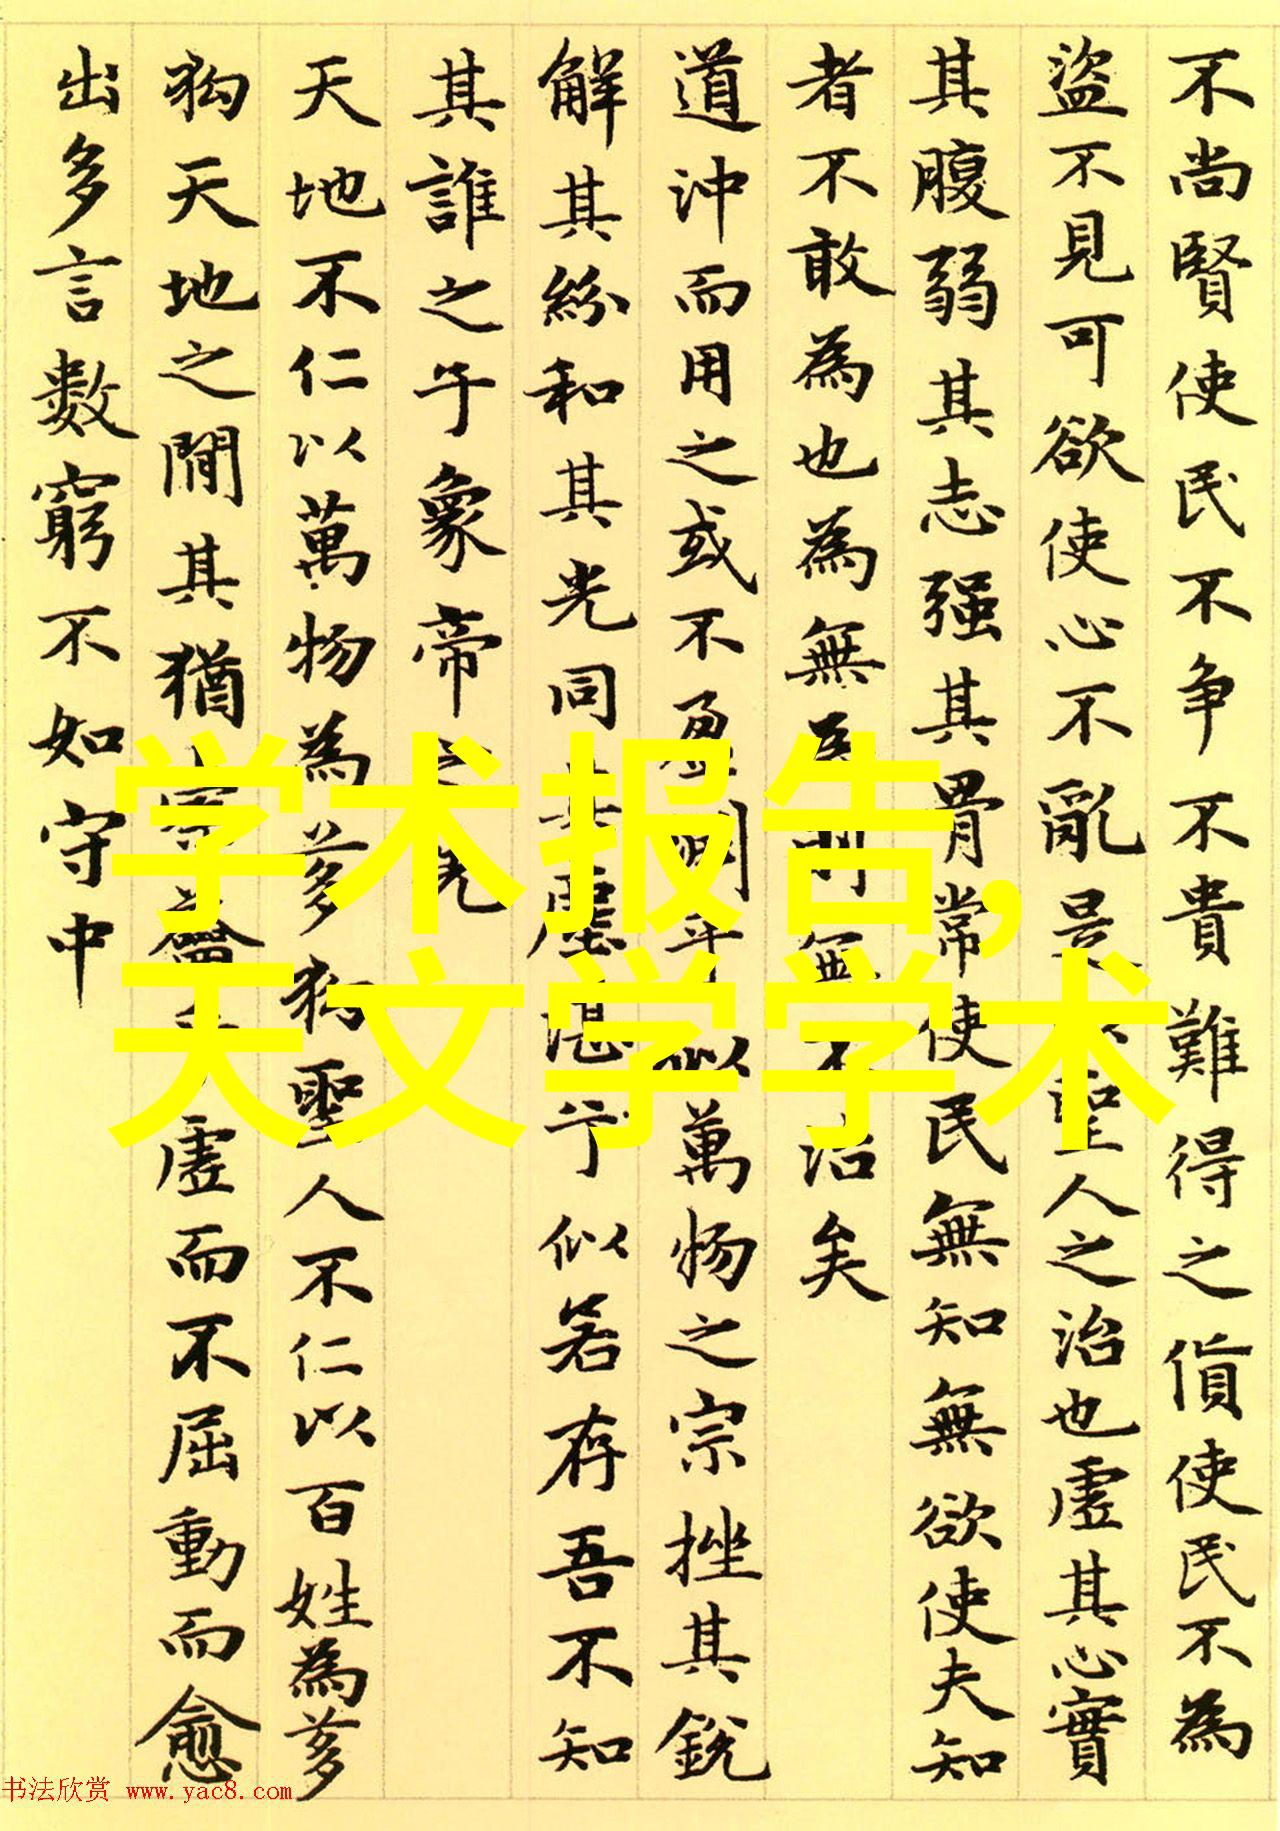 不尚賢使民不争不貴難得之貨使民不為
盜不見可欲使心不亂是以聖人之治也虛其心實
其腹弱其志强其骨常使民無知無欲使夫知
者不敢為也為無為則無不治矣
道沖而用之或不盈淵乎似萬物之宗挫其銳
解其紛和其光同其塵湛兮似若存吾不知
其誰之子象帝之先
天地不仁以萬物為芻狗聖人不仁以百姓為芻
狗天地之間其猶橐籥乎虛而不屈動而愈
出多言數窮不如守中
学术报告,
天文学学术
书法欣赏 www.yac8.com